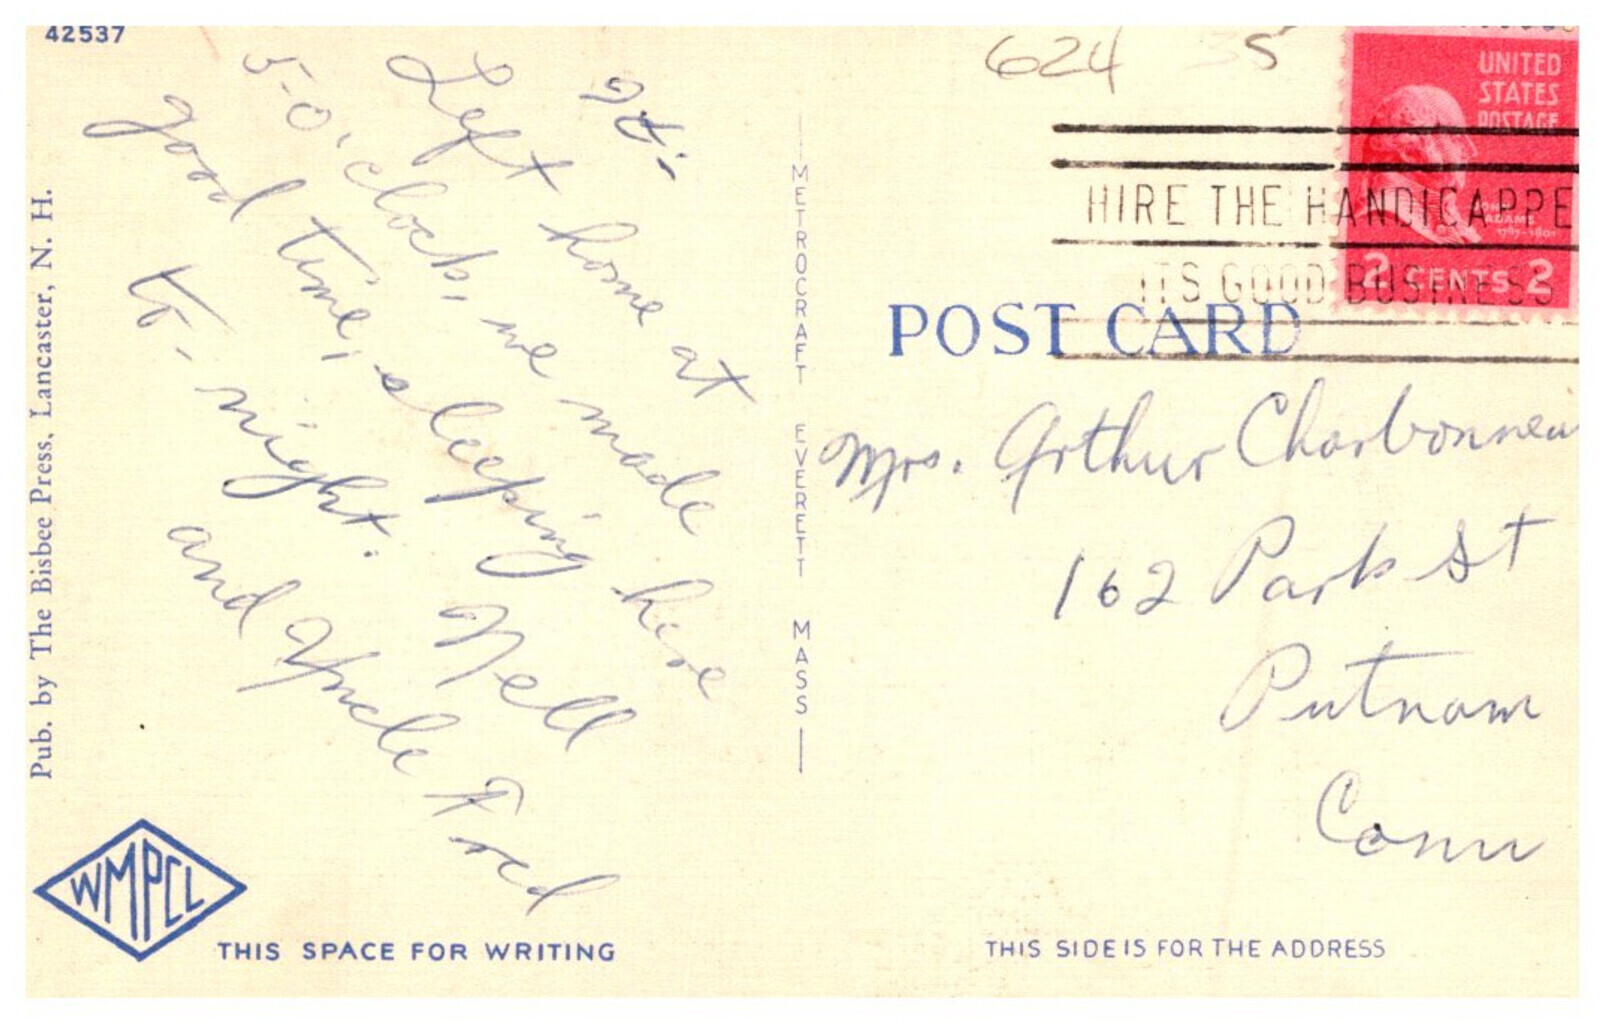 42537
Hi:-
Left home at
5-o'clock, we made
good time, sleeping here
to-night. Nell
and Uncle Fred
Pub. by The Bisbee Press, Lancaster, N. H.
WMPCL
THIS SPACE FOR WRITING
METROCRAFT EVERETT MASS
624 35
UNITED
STATES
POSTAGE
JOHN
ADAMS
1797-1801
2 CENTS 2
HIRE THE HANDICAPPE
ITS GOOD BUSINESS
POST CARD
Mrs. Arthur Charbonneau
162 Park St
Putnam
Conn
THIS SIDE IS FOR THE ADDRESS